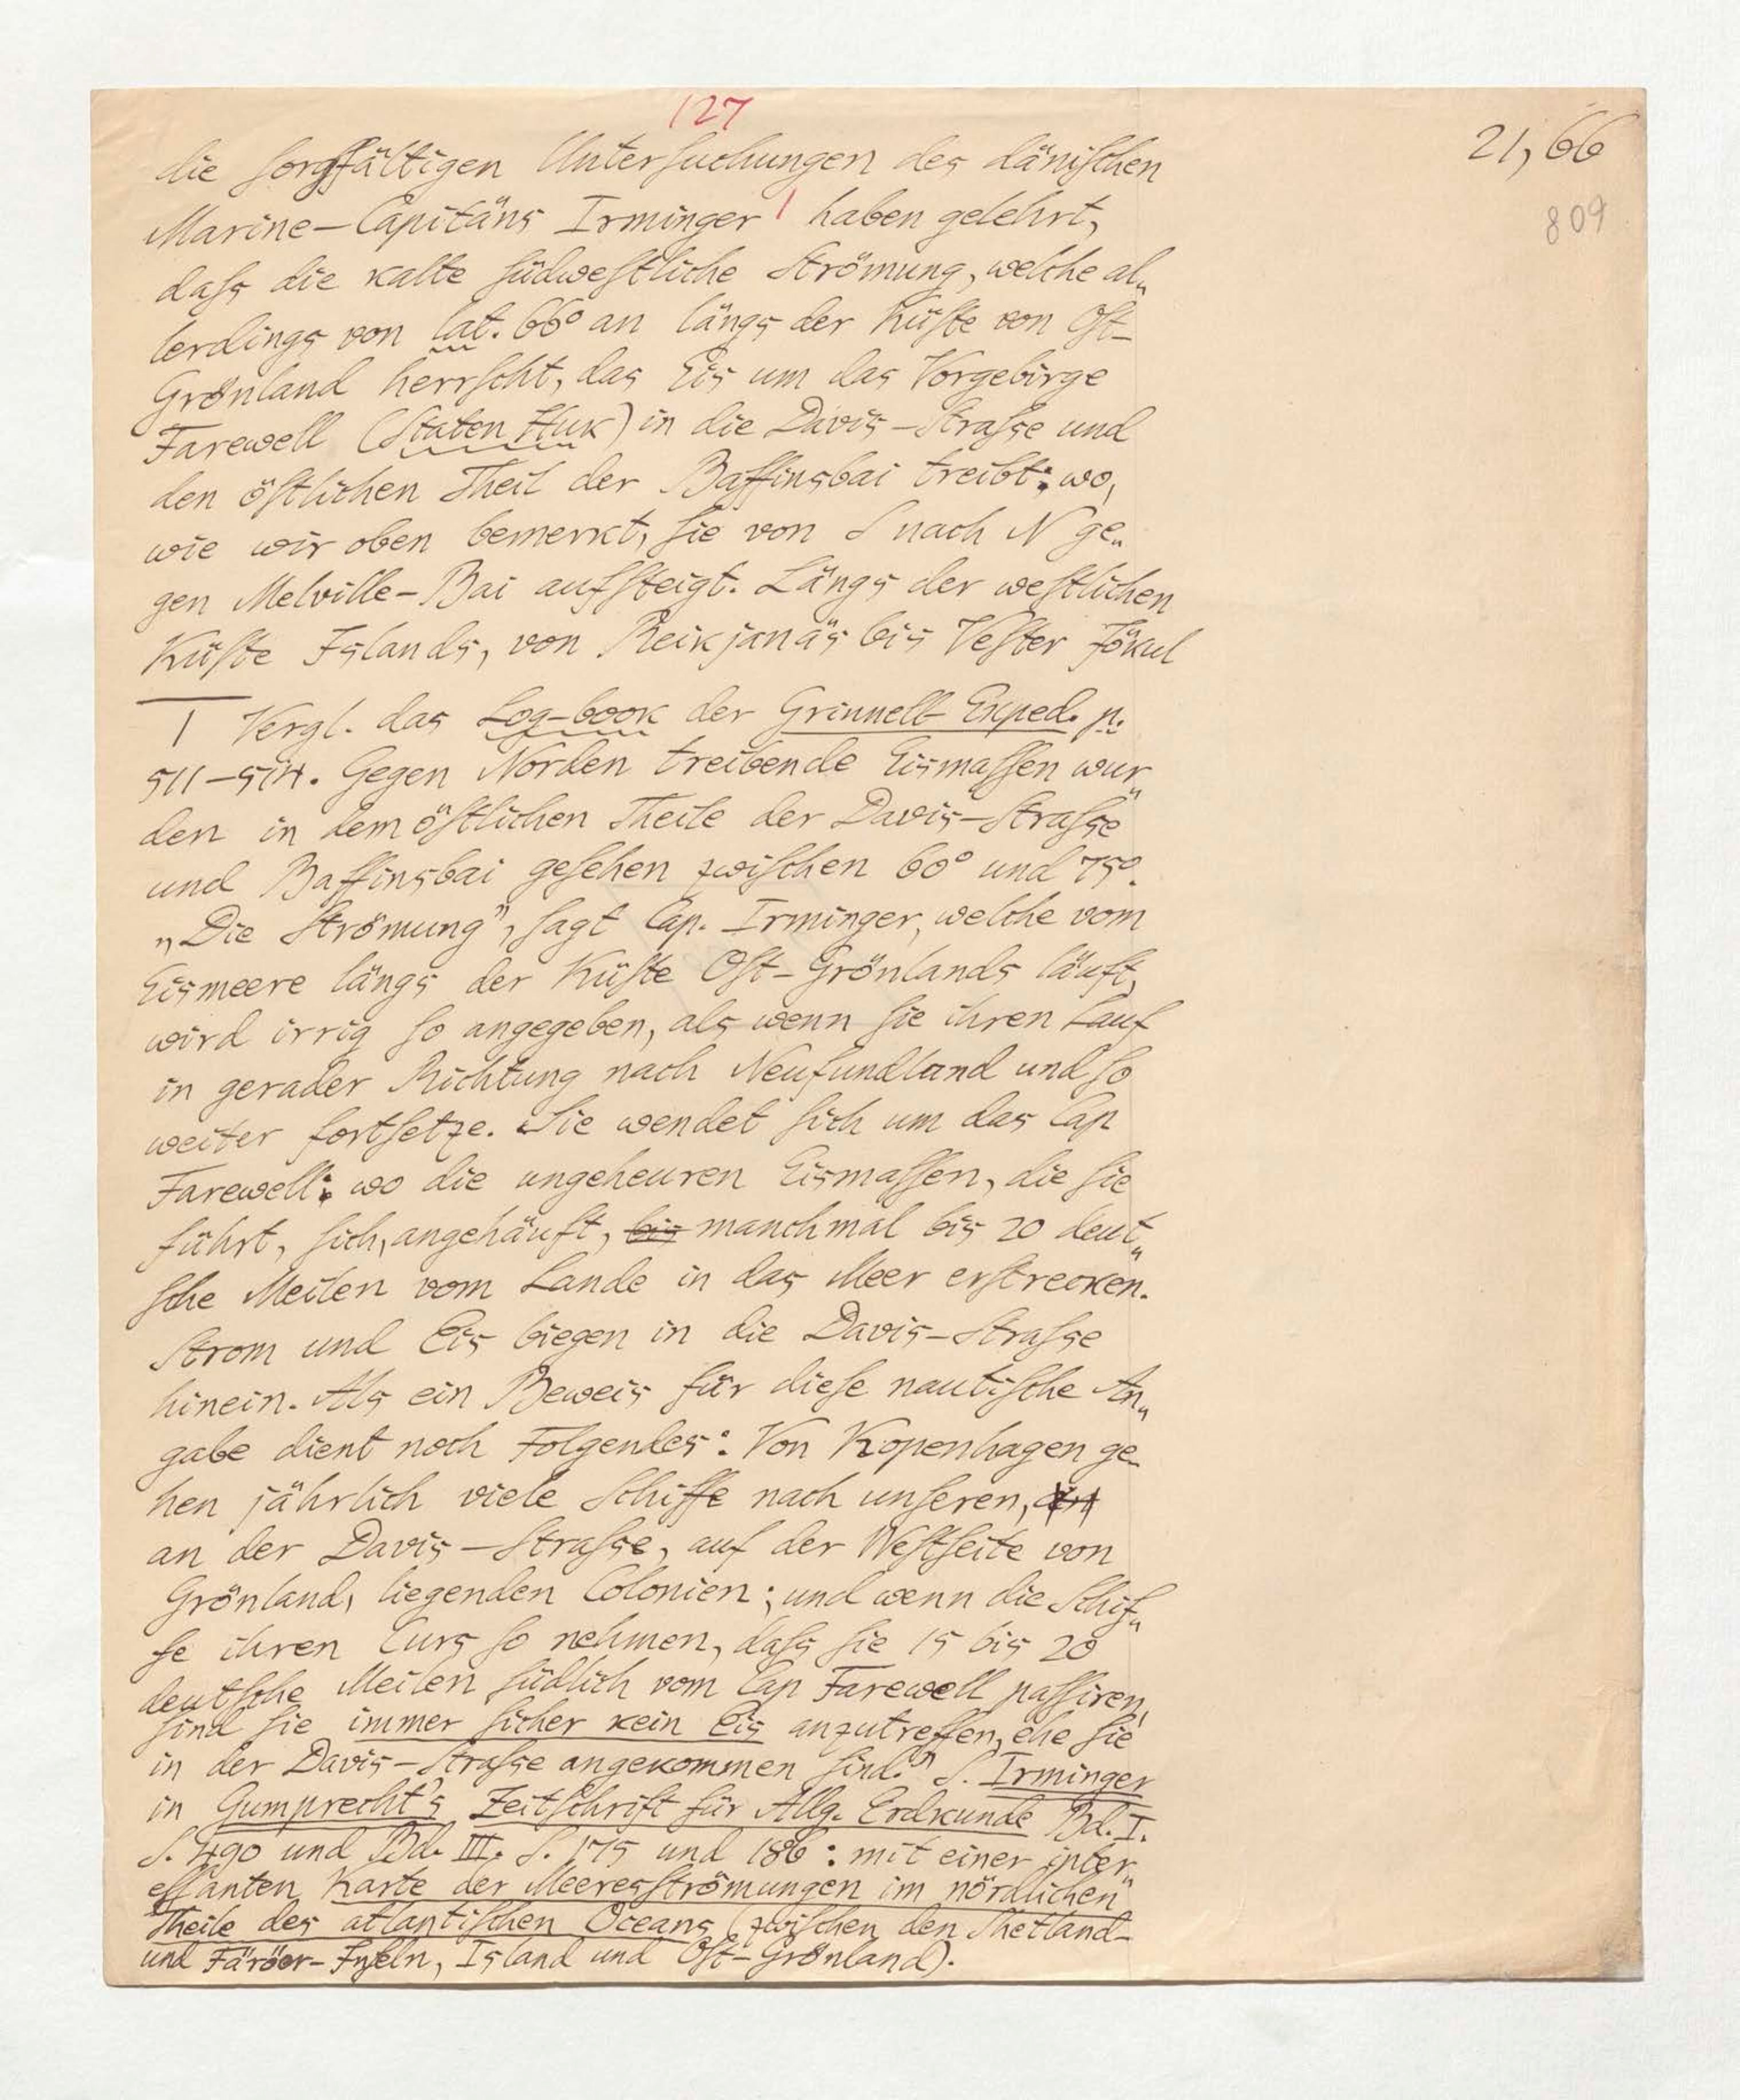 127
21, 66
809
die sorgfältigen Untersuchungen des dänischen
Marine-Capitäns Irminger 1 haben gelehrt,
dass die kalte südwestliche Strömung, welche al„
lerdings von lat. 66° an längs der Küste von Ost-
Grönland herrscht, das Eis um das Vorgebirge
Farewell (Staten Huk) in die Davis-Strasse und
den östlichen Theil der Baffinsbai treibt: wo,
wie wir oben bemerkt, sie von S nach N ge„
gen Melville-Bai aufsteigt. Längs der westlichen
Küste Islands, von Reikjanäs bis Vester Jökul
1 Vergl. das Log-book der Grinnell Exped. p.
511-514. Gegen Norden treibende Eismassen wur„
den in dem östlichen Theile der Davis-Strasse
und Baffinsbai gesehen zwischen 60° und 75°.
„Die Strömung", sagt Cap. Irminger, welche vom
Eismeere längs der Küste Ost-Grönlands läuft,
wird irrig so angegeben, als wenn sie ihren Lauf
in gerader Richtung nach Neufundland und so
weiter fortsetze. Sie wendet sich um das Cap
Farewell: wo die ungeheuren Eismassen, die sie
führt, sich, angehäuft, bis manchmal bis 20 deut„
sche Meilen vom Lande in das Meer erstrecken.
Strom und Eis biegen in die Davis-Strasse
hinein. Als ein Beweis für diese nautische An„
gabe dient noch Folgendes: Von Kopenhagen ge-
hen jährlich viele Schiffe nach unseren,
an der Davis-Strasse, auf der Westseite von
Grönland, liegenden Colonien; und wenn die Schif„
fe ihren Curs so nehmen, dass sie 15 bis 20
deutsche Meilen südlich vom Cap Farewell passiren,
sind sie immer sicher kein Eis anzutreffen, ehe sie
in der Davis-Strasse angekommen sind." S. Irminger
in Gumprecht's Zeitschrift für Allg. Erdkunde Bd. I.
S. 490 und Bd. III. S. 175 und 186: mit einer inter„
essanten Karte der Meeresströmungen im nördlichen
Theile des atlantischen Oceans (zwischen den Shetland-
und Färöer-Inseln, Island und Ost-Grönland).